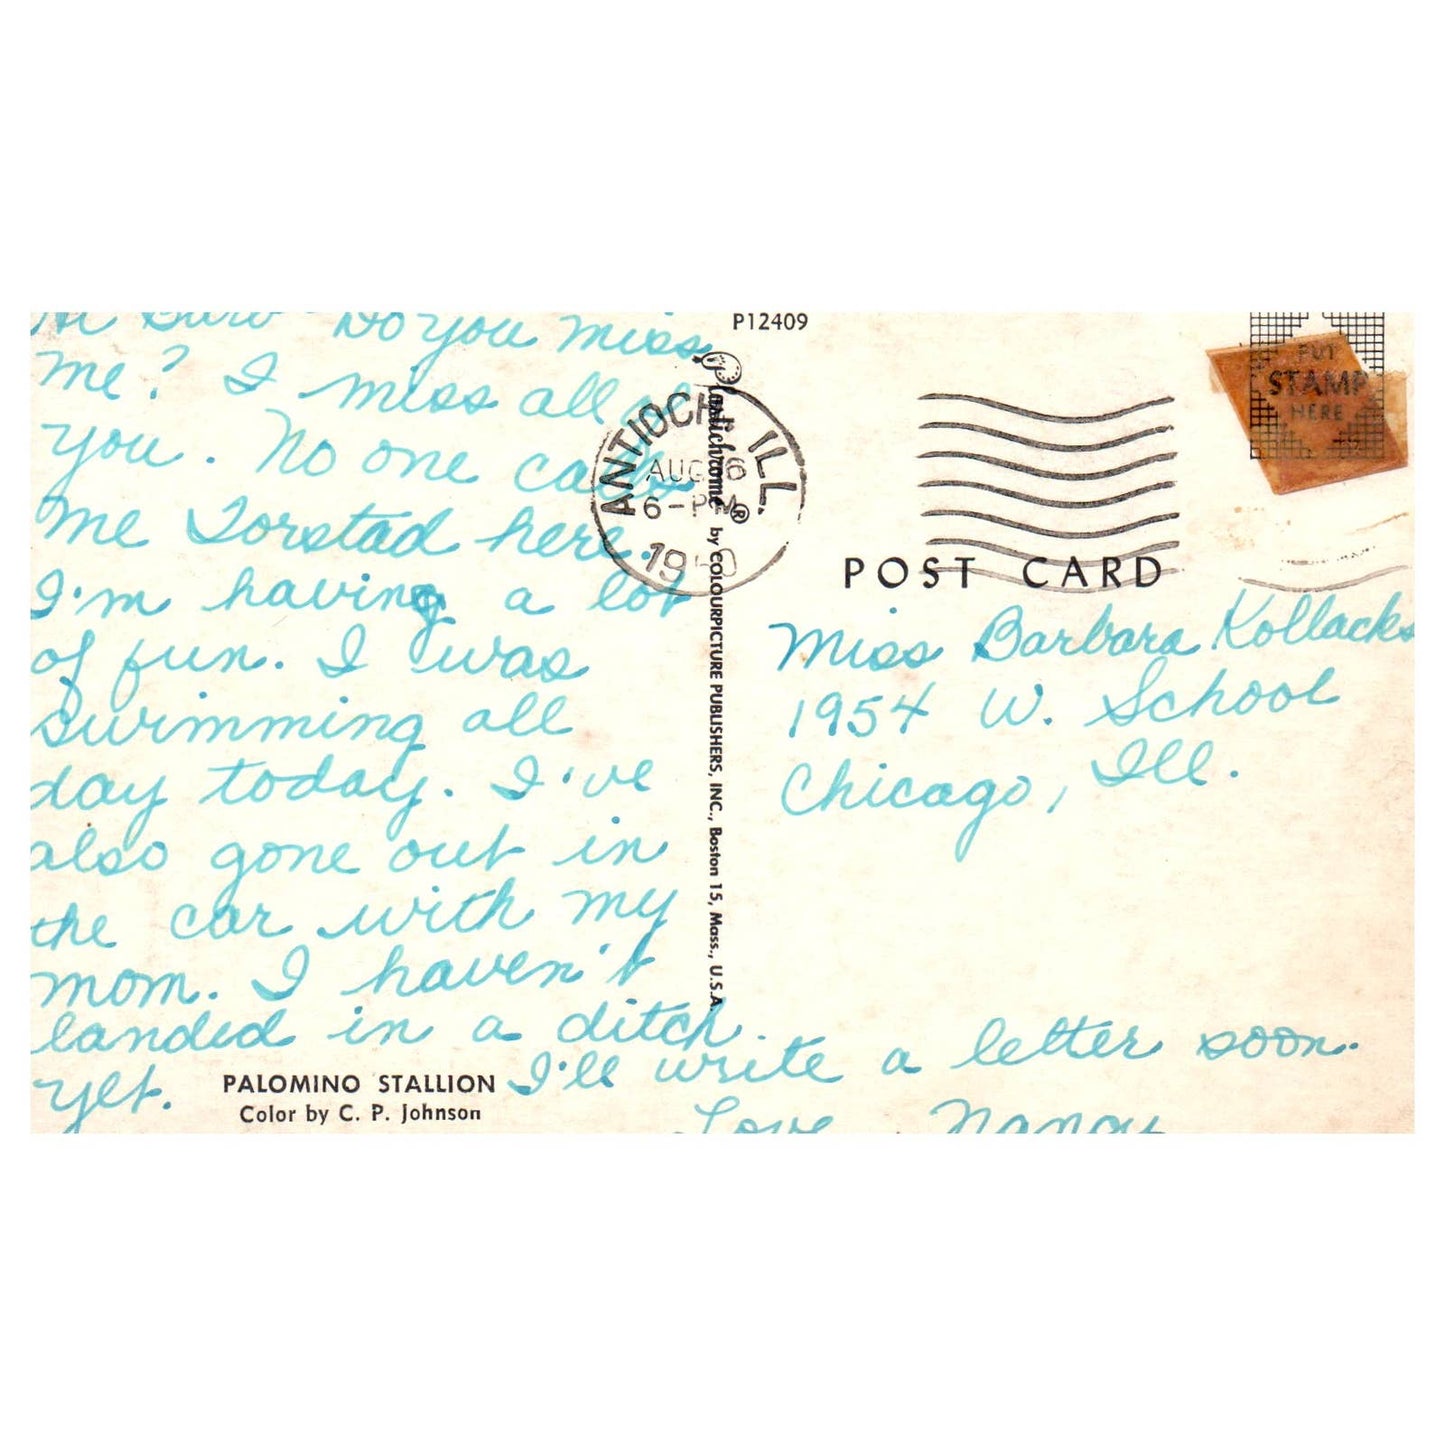 Hi Barb Do you miss
me? I miss all of
you. No one calls
me Torstad here.
I'm having a lot
of fun. I was
swimming all
day today. I've
also gone out in
the car with my
mom. I haven't
landed in a ditch
yet. I'll write a letter soon.
Love, Nancy
PALOMINO STALLION
Color by C. P. Johnson
P12409
Plastichrome® by COLOURPICTURE PUBLISHERS, INC., Boston 15, Mass., U.S.A.
ANTIOCH, ILL.
AUG
6-PM
PUT
STAMP
HERE
POST CARD
Miss Barbara Kollacks
1954 W. School
Chicago, Ill.